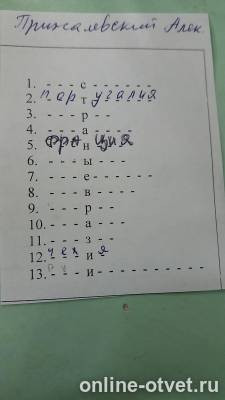 Пржисалевский Алек
1. - - - с - - - - - -
2. партугалия
3. - - - р - -
4. - - - а - - - -
5. Франция
6. - - - ы - - -
7. - - - е - - - - - -
8. - - - в - - - -
9. - - - р - -
10. - - - а - - -
11. - - - з - -
12. чехия
13. ру - и - - - - - - - - - - - -
online-otvet.ru